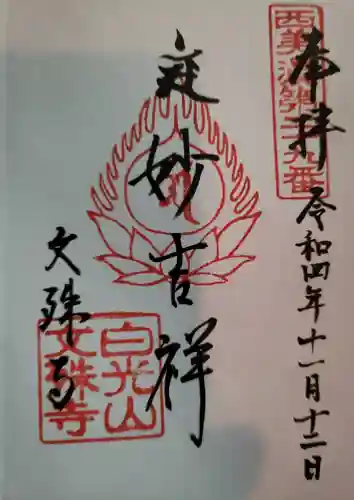 奉拝
西美濃第二十九番
令和四年十一月十二日
妙吉祥
文殊寺
白光山
文殊寺